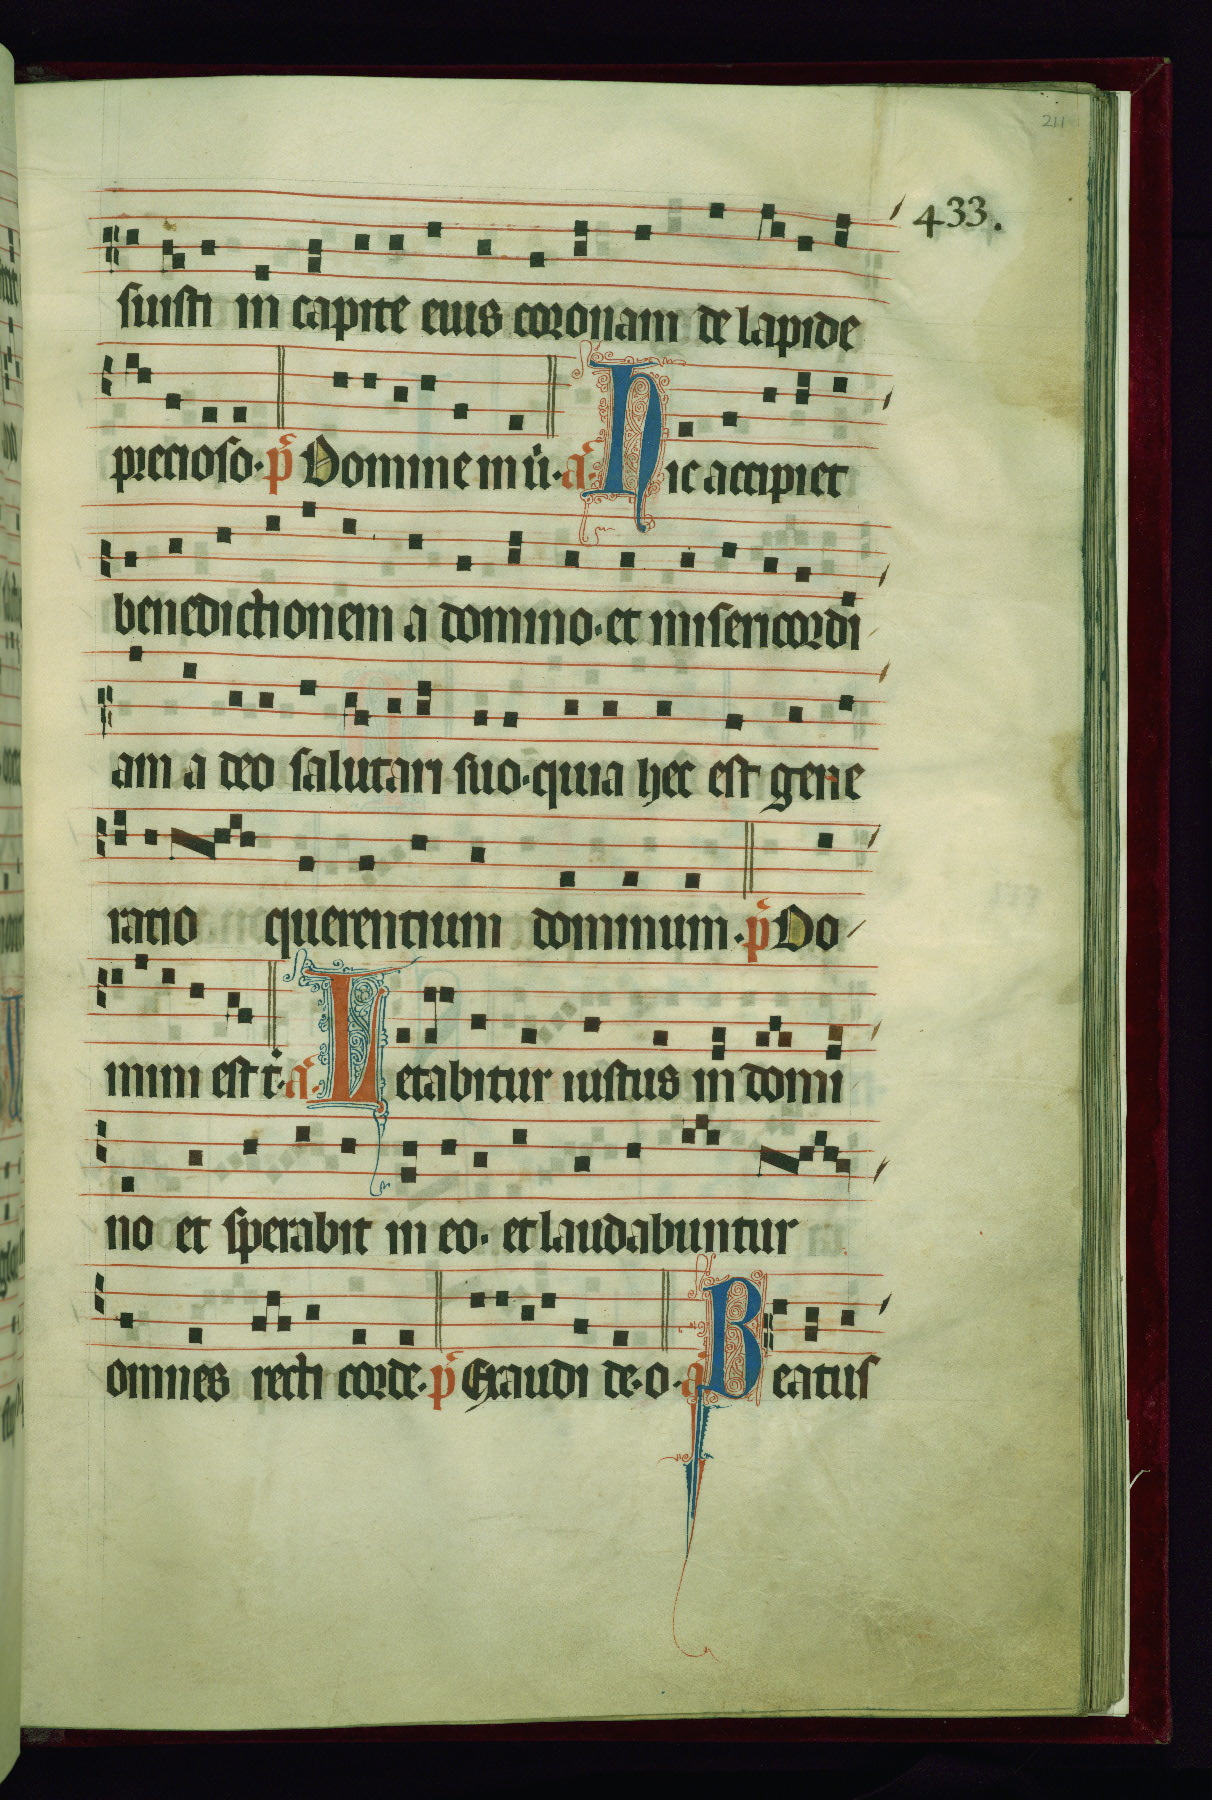 211
433.
suisti in capite eius coronam de lapide
precioso. p̃ Domine in ü. ã. Hic accipiet
benedictionem a domino. et misericordi
am a deo salutari suo. quia hec est gene
ratio querentium dominum. p̃ Do
mini est t̄. ã. Letabitur iustus in domi
no et sperabit in eo. et laudabuntur
omnes recti corde. p̃ Exaudi de. o. ã Beatus